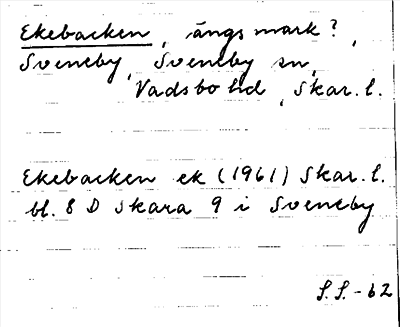 Ekebacken, ängsmark?,
Sveneby, Sveneby sn,
Vadsbo hd, Skar. l.
Ekebacken ek (1961) Skar. l.
bl. 8 D Skara 9 i Sveneby
S.S.-62